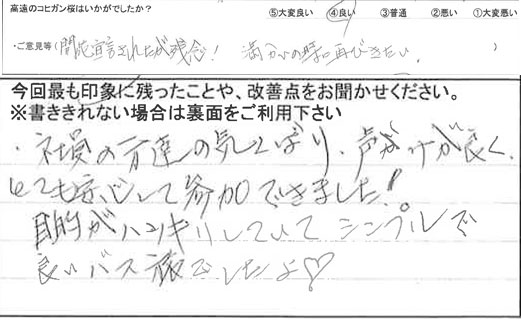 高遠のコヒガン桜はいかがでしたか？ ⑤大変良い ④良い ③普通 ②悪い ①大変悪い
・ご意見等（開花宣言されたが残念！ 満カイの時に再びきたい。）
今回最も印象に残ったことや、改善点をお聞かせください。
※書ききれない場合は裏面をご利用下さい
・社員の方達の気くばり、声がけが良く、
とても安心して参加できました！
目的がハッキリしていて シンプルで
良いバス旅でしたよ♡